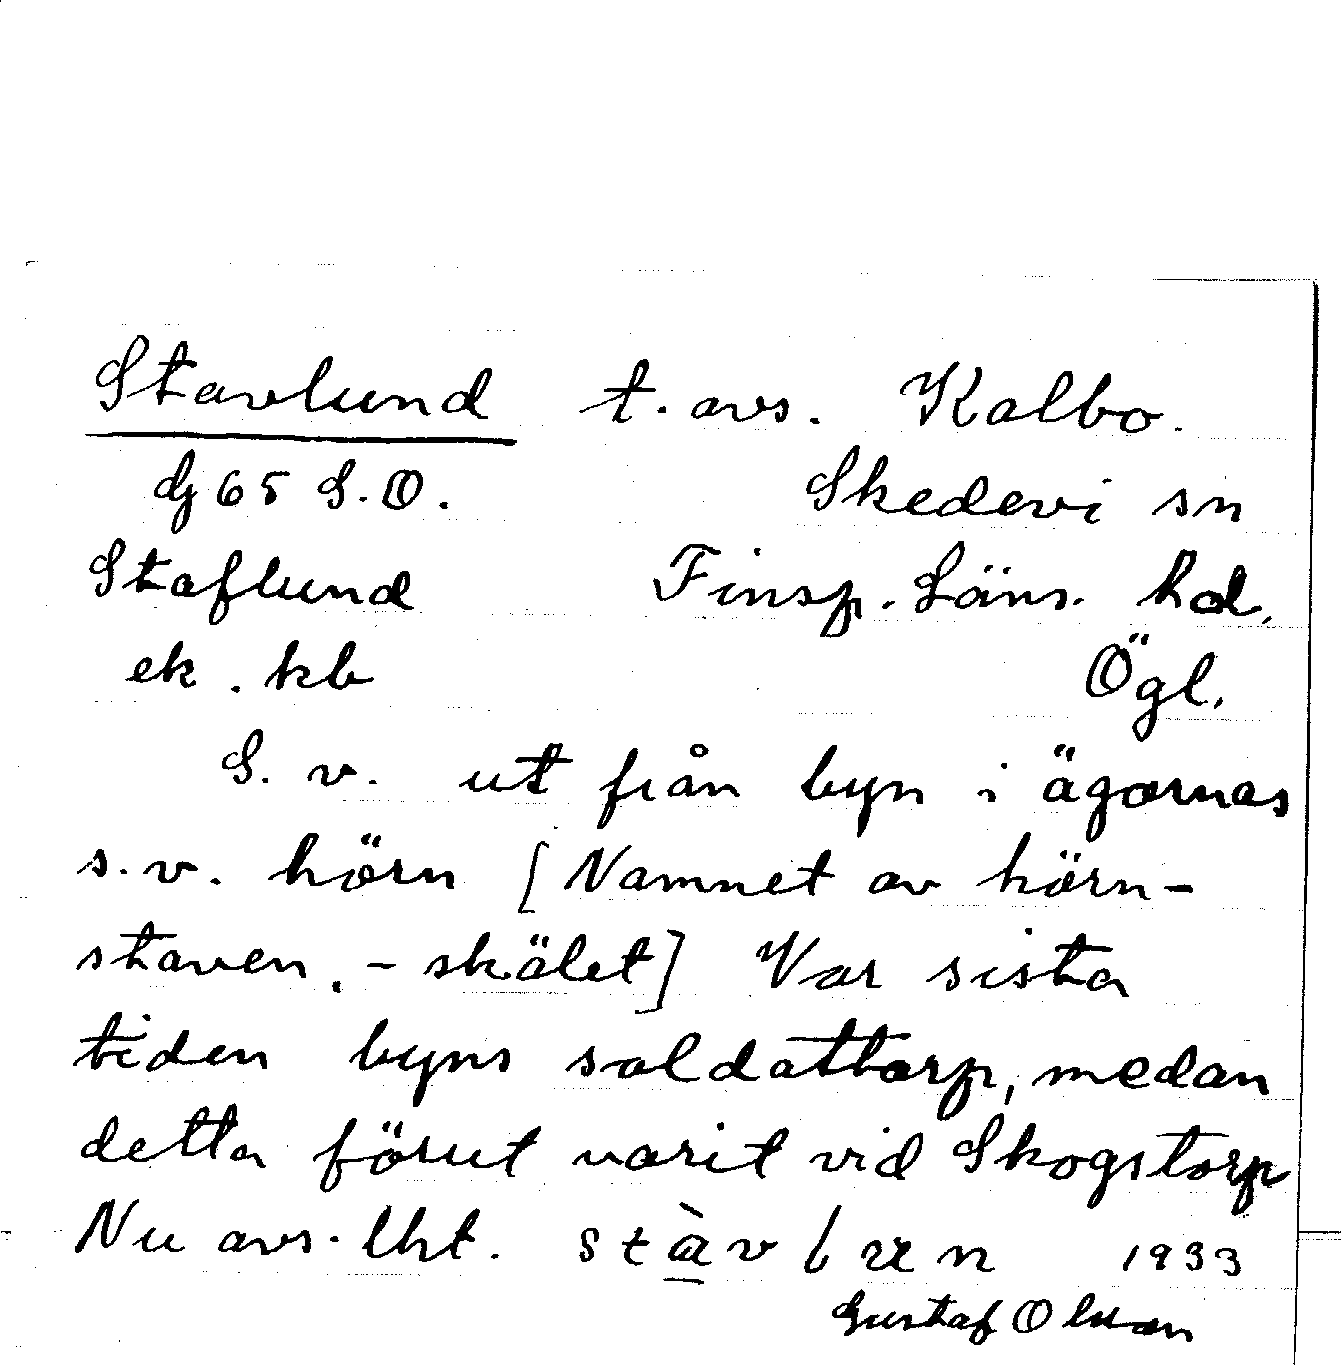 Stavlund t. avs. Kalbo.
dj 65 S.O. Skedevi sn
Staflund Finsp. Läns. hd.
ek. kb Ögl.
S. v. ut från byn i ägornas
s.v. hörn [Namnet av hörn-
staven, - skälet] Var sista
tiden byns soldattorp, medan
detta förut varit vid Skogstorp
Nu avs. lht. 1933
Gustaf Olsson